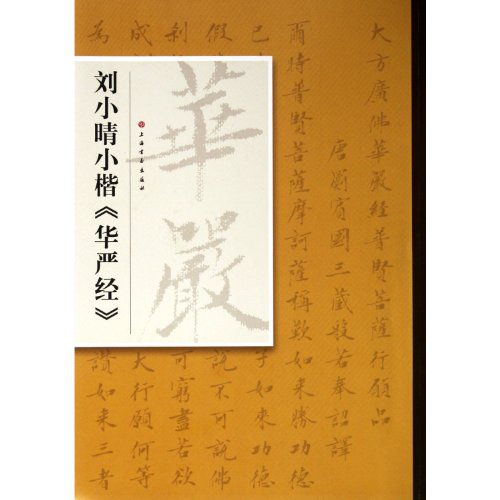 大方廣佛華嚴經普賢菩薩行願品
唐罽賓國三藏般若奉詔譯
爾時普賢菩薩摩訶薩稱歎如來勝功德
已
子如來功德
假
說不可說佛
刹
可窮盡若欲
成
大行願何等
為
讚如來三者
華嚴
上海书画出版社
刘小晴小楷《华严经》